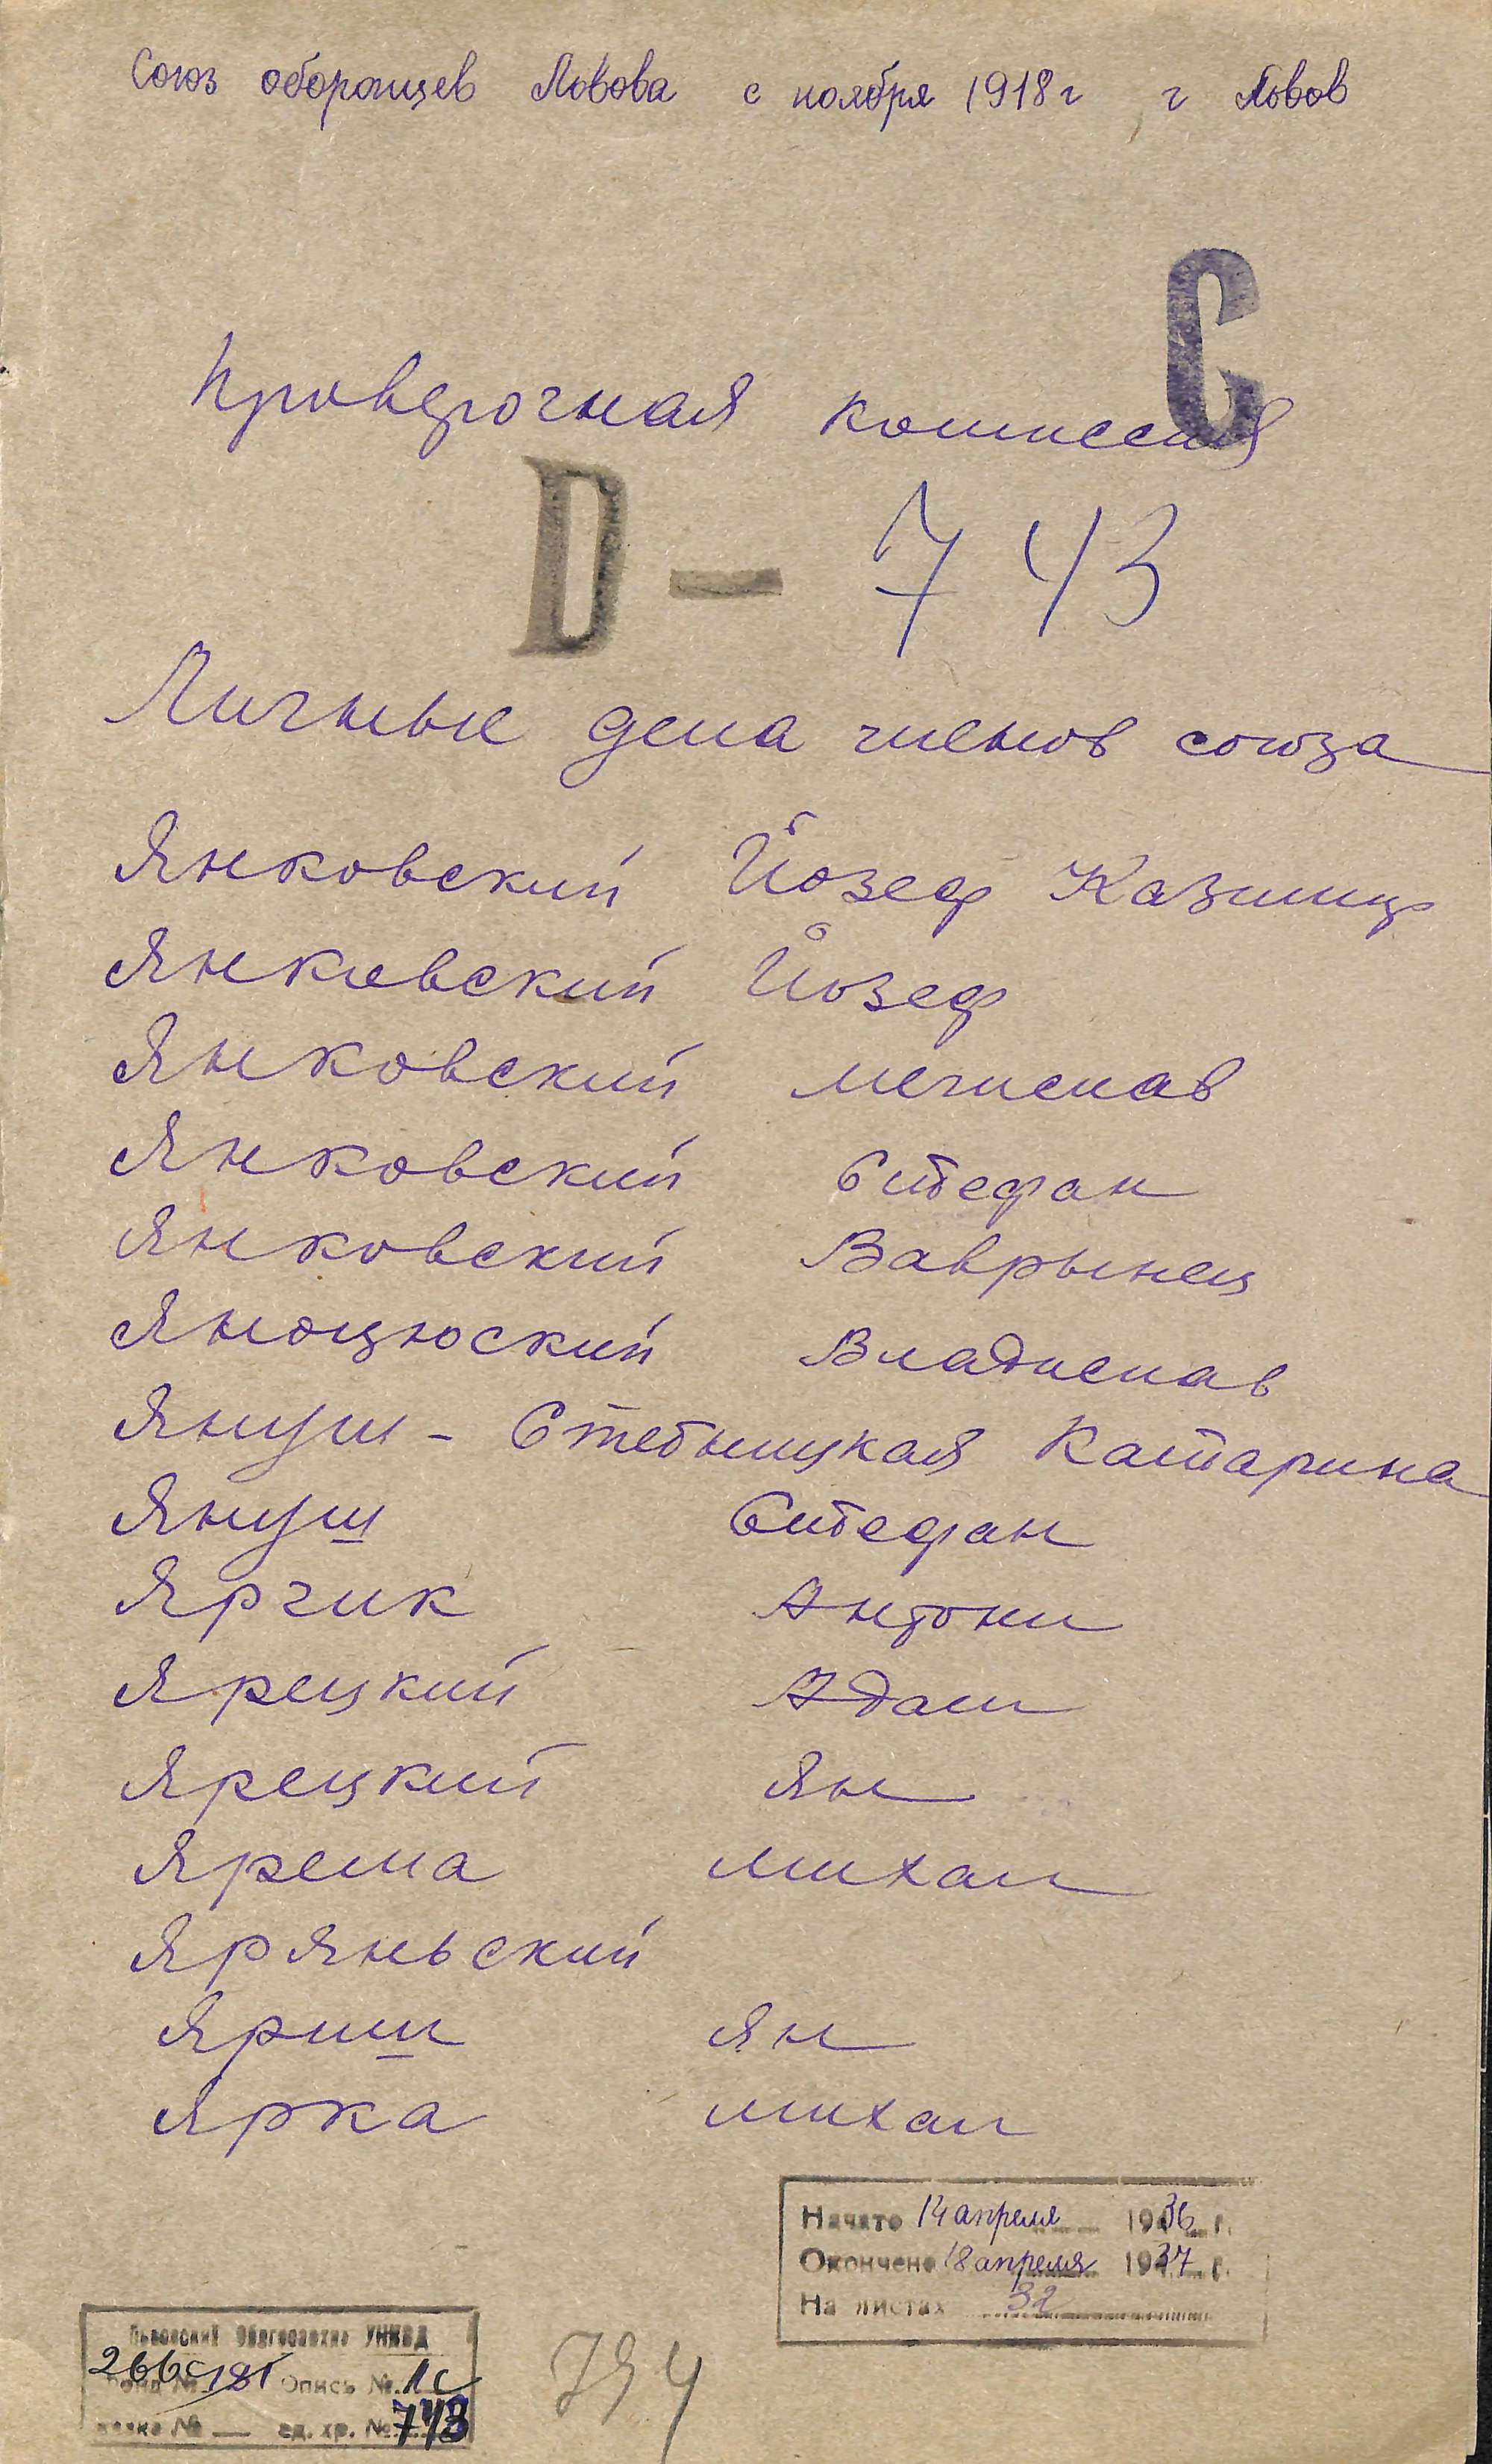 Союз оборонцев Львова с ноября 1918 г г Львов
С
Проверочная комиссия
D — 743
Личные дела членов союза
Янковский Йозеф Казимир
Янковский Йозеф
Янковский Мечислав
Янковский Стефан
Янковский Ваврынец
Яноцюский Владислав
Януш - Стебницкая Катарина
Януш Стефан
Ярчик Антони
Ярецкий Адам
Ярецкий Ян
Ярема Михал
Яряньский
Яриш Ян
Ярка Михал
Начато 14 апреля 1936 г.
Окончено 18 апреля 1937 г.
На листах 32
Львовский Облгосархив УНКВД
266с
Фонд № 181 Опись № 1с
связка № — ед. хр. № 743
794